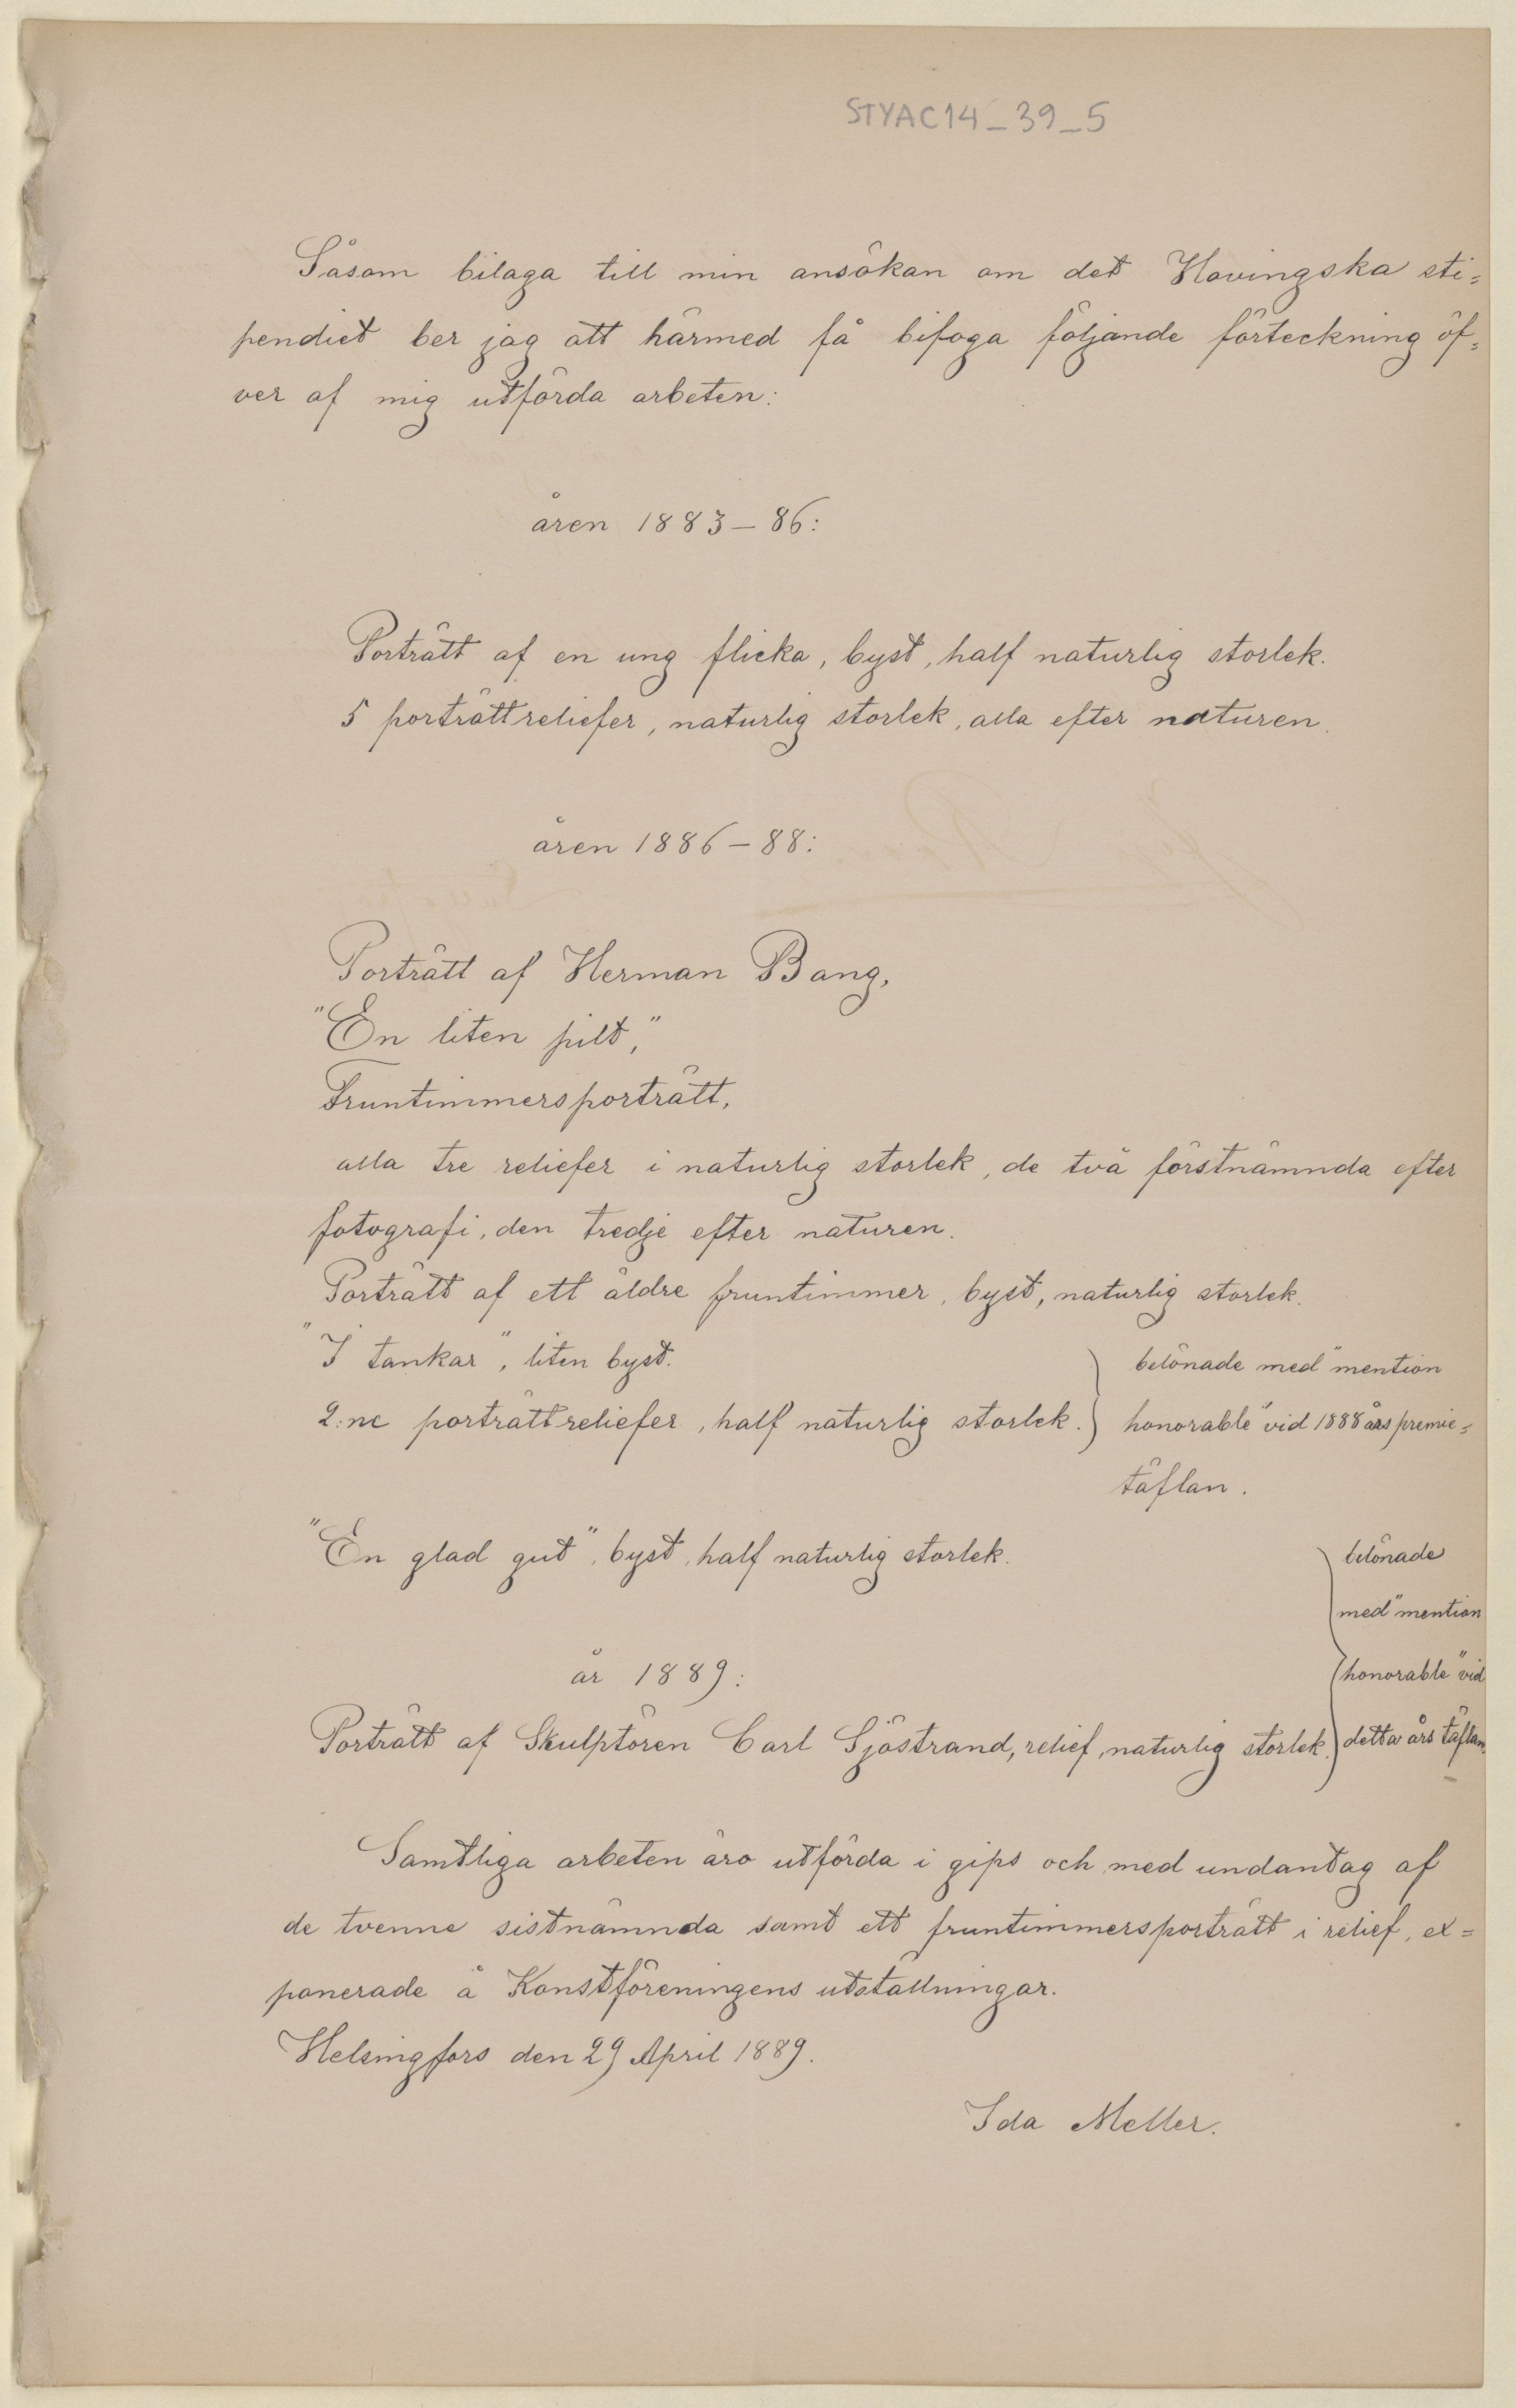 STYAC14_39_5
Såsom bilaga till min ansökan om det Hovingska sti=
pendiet ber jag att härmed få bifoga följande förteckning öf=
ver af mig utförda arbeten:
åren 1883–86:
Porträtt af en ung flicka, byst, half naturlig storlek.
5 porträttreliefer, naturlig storlek, alla efter naturen.
åren 1886–88:
Porträtt af Herman Bang,
"En liten pilt,"
Fruntimmersporträtt,
alla tre reliefer i naturlig storlek, de två förstnämnda efter
fotografi, den tredje efter naturen.
Porträtt af ett äldre fruntimmer, byst, naturlig storlek.
"I tankar", liten byst.
2:ne porträttreliefer, half naturlig storlek.
belönade med "mention
honorable" vid 1888 års premie=
täflan.
"En glad gut", byst, half naturlig storlek.
år 1889:
Porträtt af Skulptören Carl Sjöstrand, relief, naturlig storlek.
belönade
med "mention
honorable" vid
detta års täflan.
Samtliga arbeten äro utförda i gips och med undantag af
de tvenne sistnämnda samt ett fruntimmersporträtt i relief, ex=
ponerade å Konstföreningens utställningar.
Helsingfors den 29 April 1889.
Ida Meller.